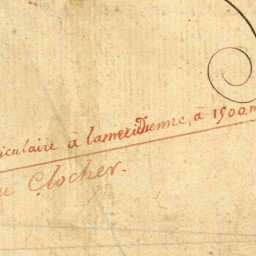 iculaire à la meridienne, à 1500 m
u Clocher.